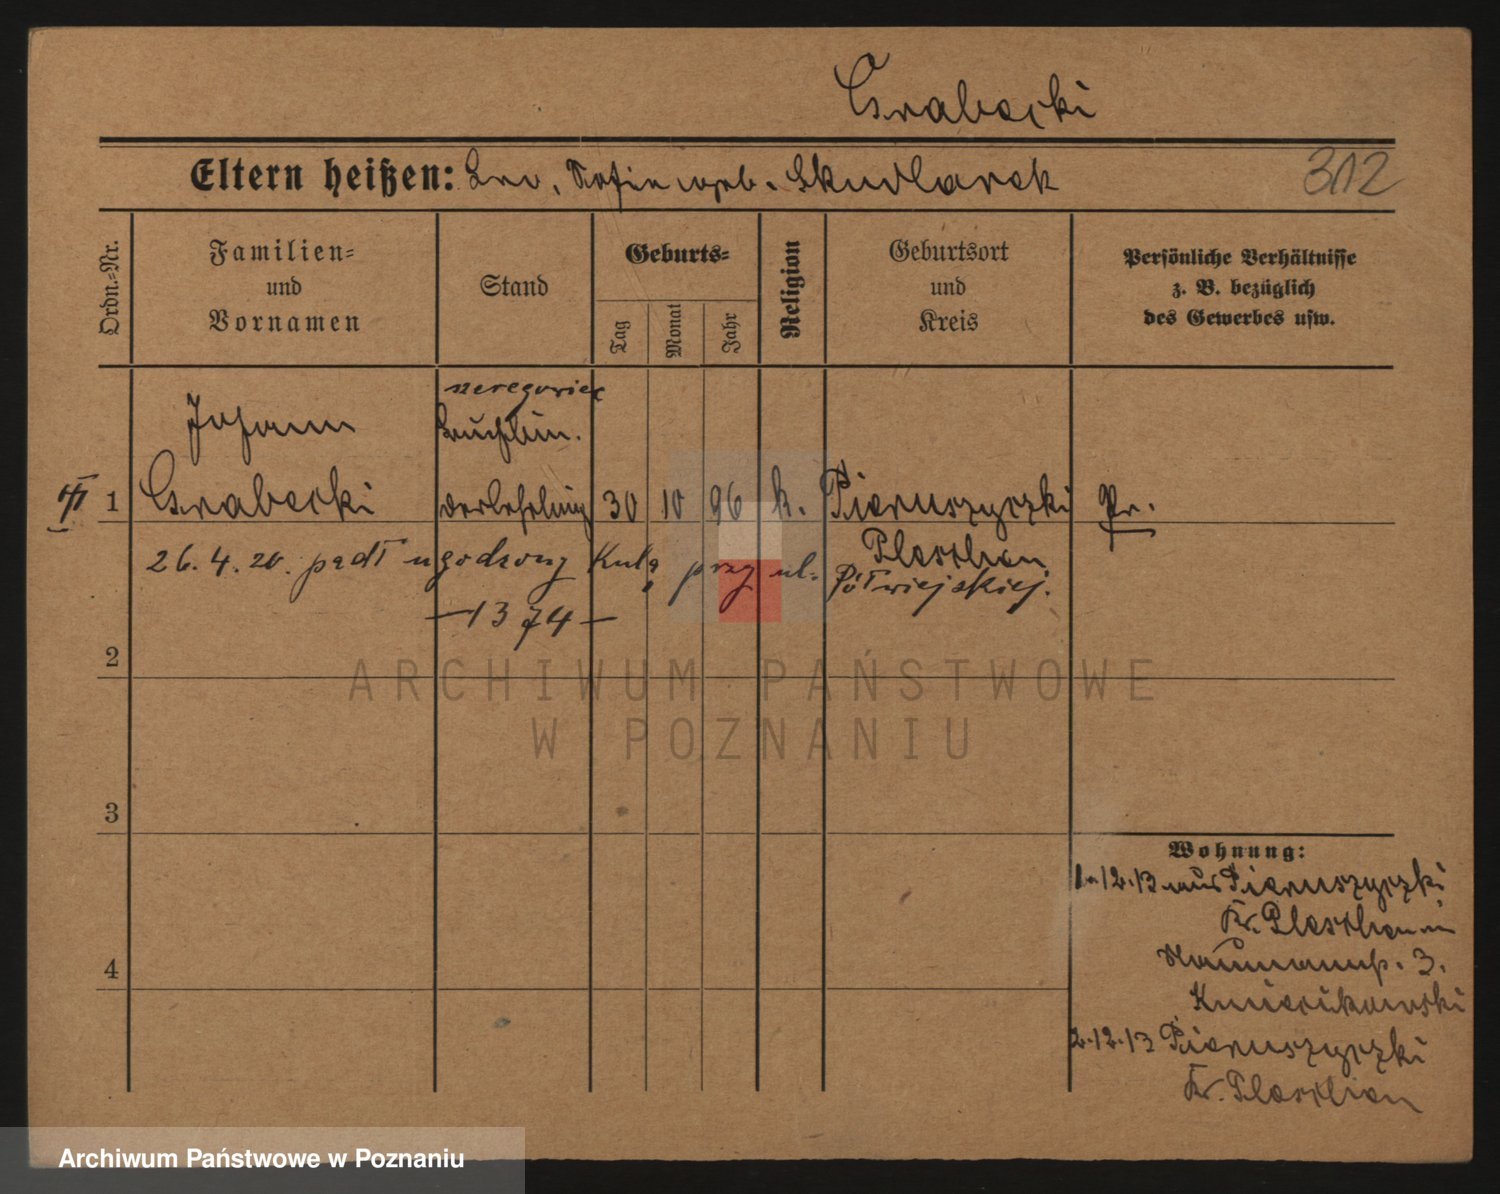 Grabecki
Eltern heißen: Leo, Sofie geb. Skudlarek
312
Ordn.-Nr.
Familien-
und
Vornamen
Stand
Geburts-
Tag
Monat
Jahr
Religion
Geburtsort
und
Kreis
Persönliche Verhältnisse
z. B. bezüglich
des Gewerbes usw.
Johann
Grabecki
Buchbin.
derlehrling
1
30
10
96
k.
Pieruszyczki
Pleschen
Pr.
26.4.20. padł ugodzony kulą przy ul. Półwiejskiej.
—1374—
2
3
4
Wohnung:
1.12.13 aus Pieruszyczki
Kr. Pleschen in
Naumannst. 3.
2.12.13 Pieruszyczki
Kr. Pleschen
ARCHIWUM PAŃSTWOWE
W POZNANIU
Archiwum Państwowe w Poznaniu